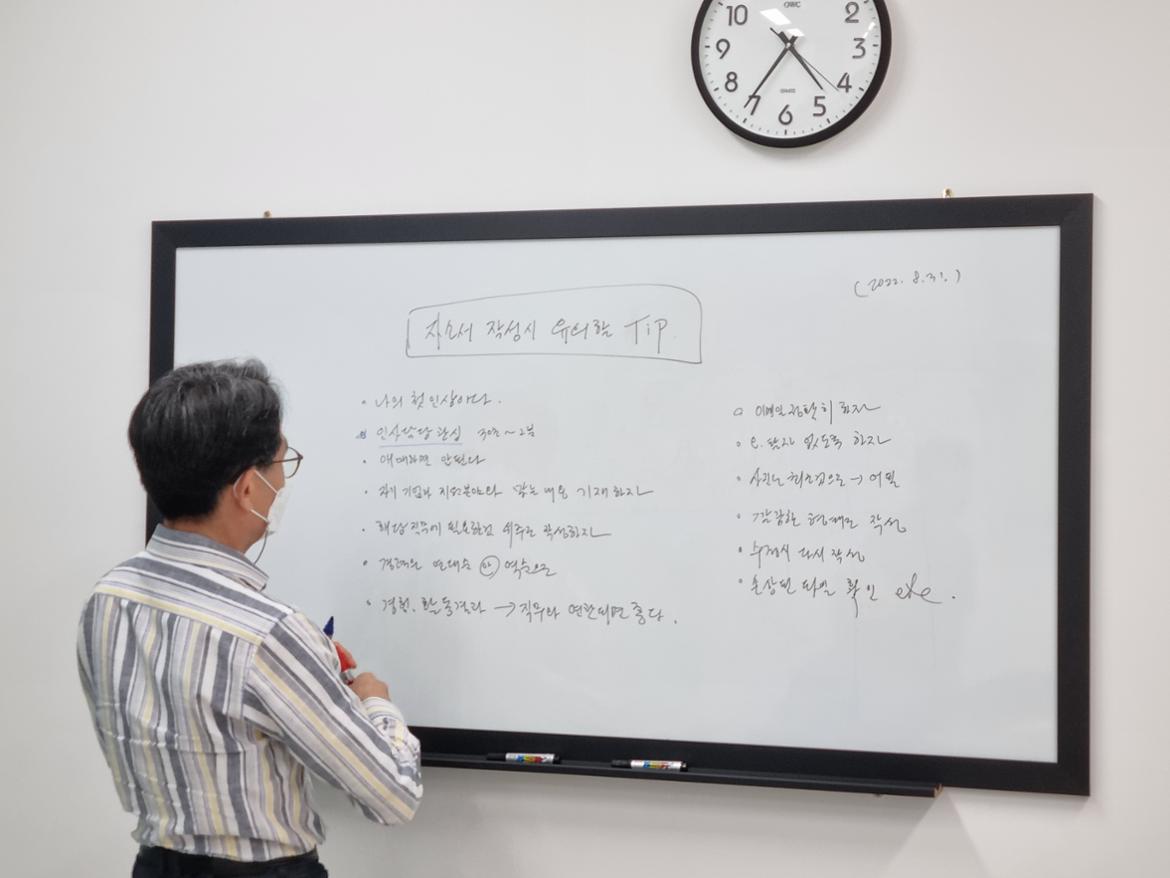 10
2
9
3
8
4
7
5
6
(2022. 8. 31.)
자소서 작성시 유의할 TiP.
• 나의 첫인상이다.
• 인사담당 관심 30초~2분
• 애매하면 안된다
• 자기 기업과 지원분야와 맞는 내용 기재하자
• 해당직무에 필요한것 위주로 작성하자
• 경력은 연대순 역순으로
• 경험. 활동결과 → 직무와 연관되면 좋다.
• 이메일 정확히 하자
• 오.탈자 없도록 하자
• 사진은 최근것으로 →
• 형태로 작성
• 수정시 다시 작성
• 손상된 파일 확인 etc.